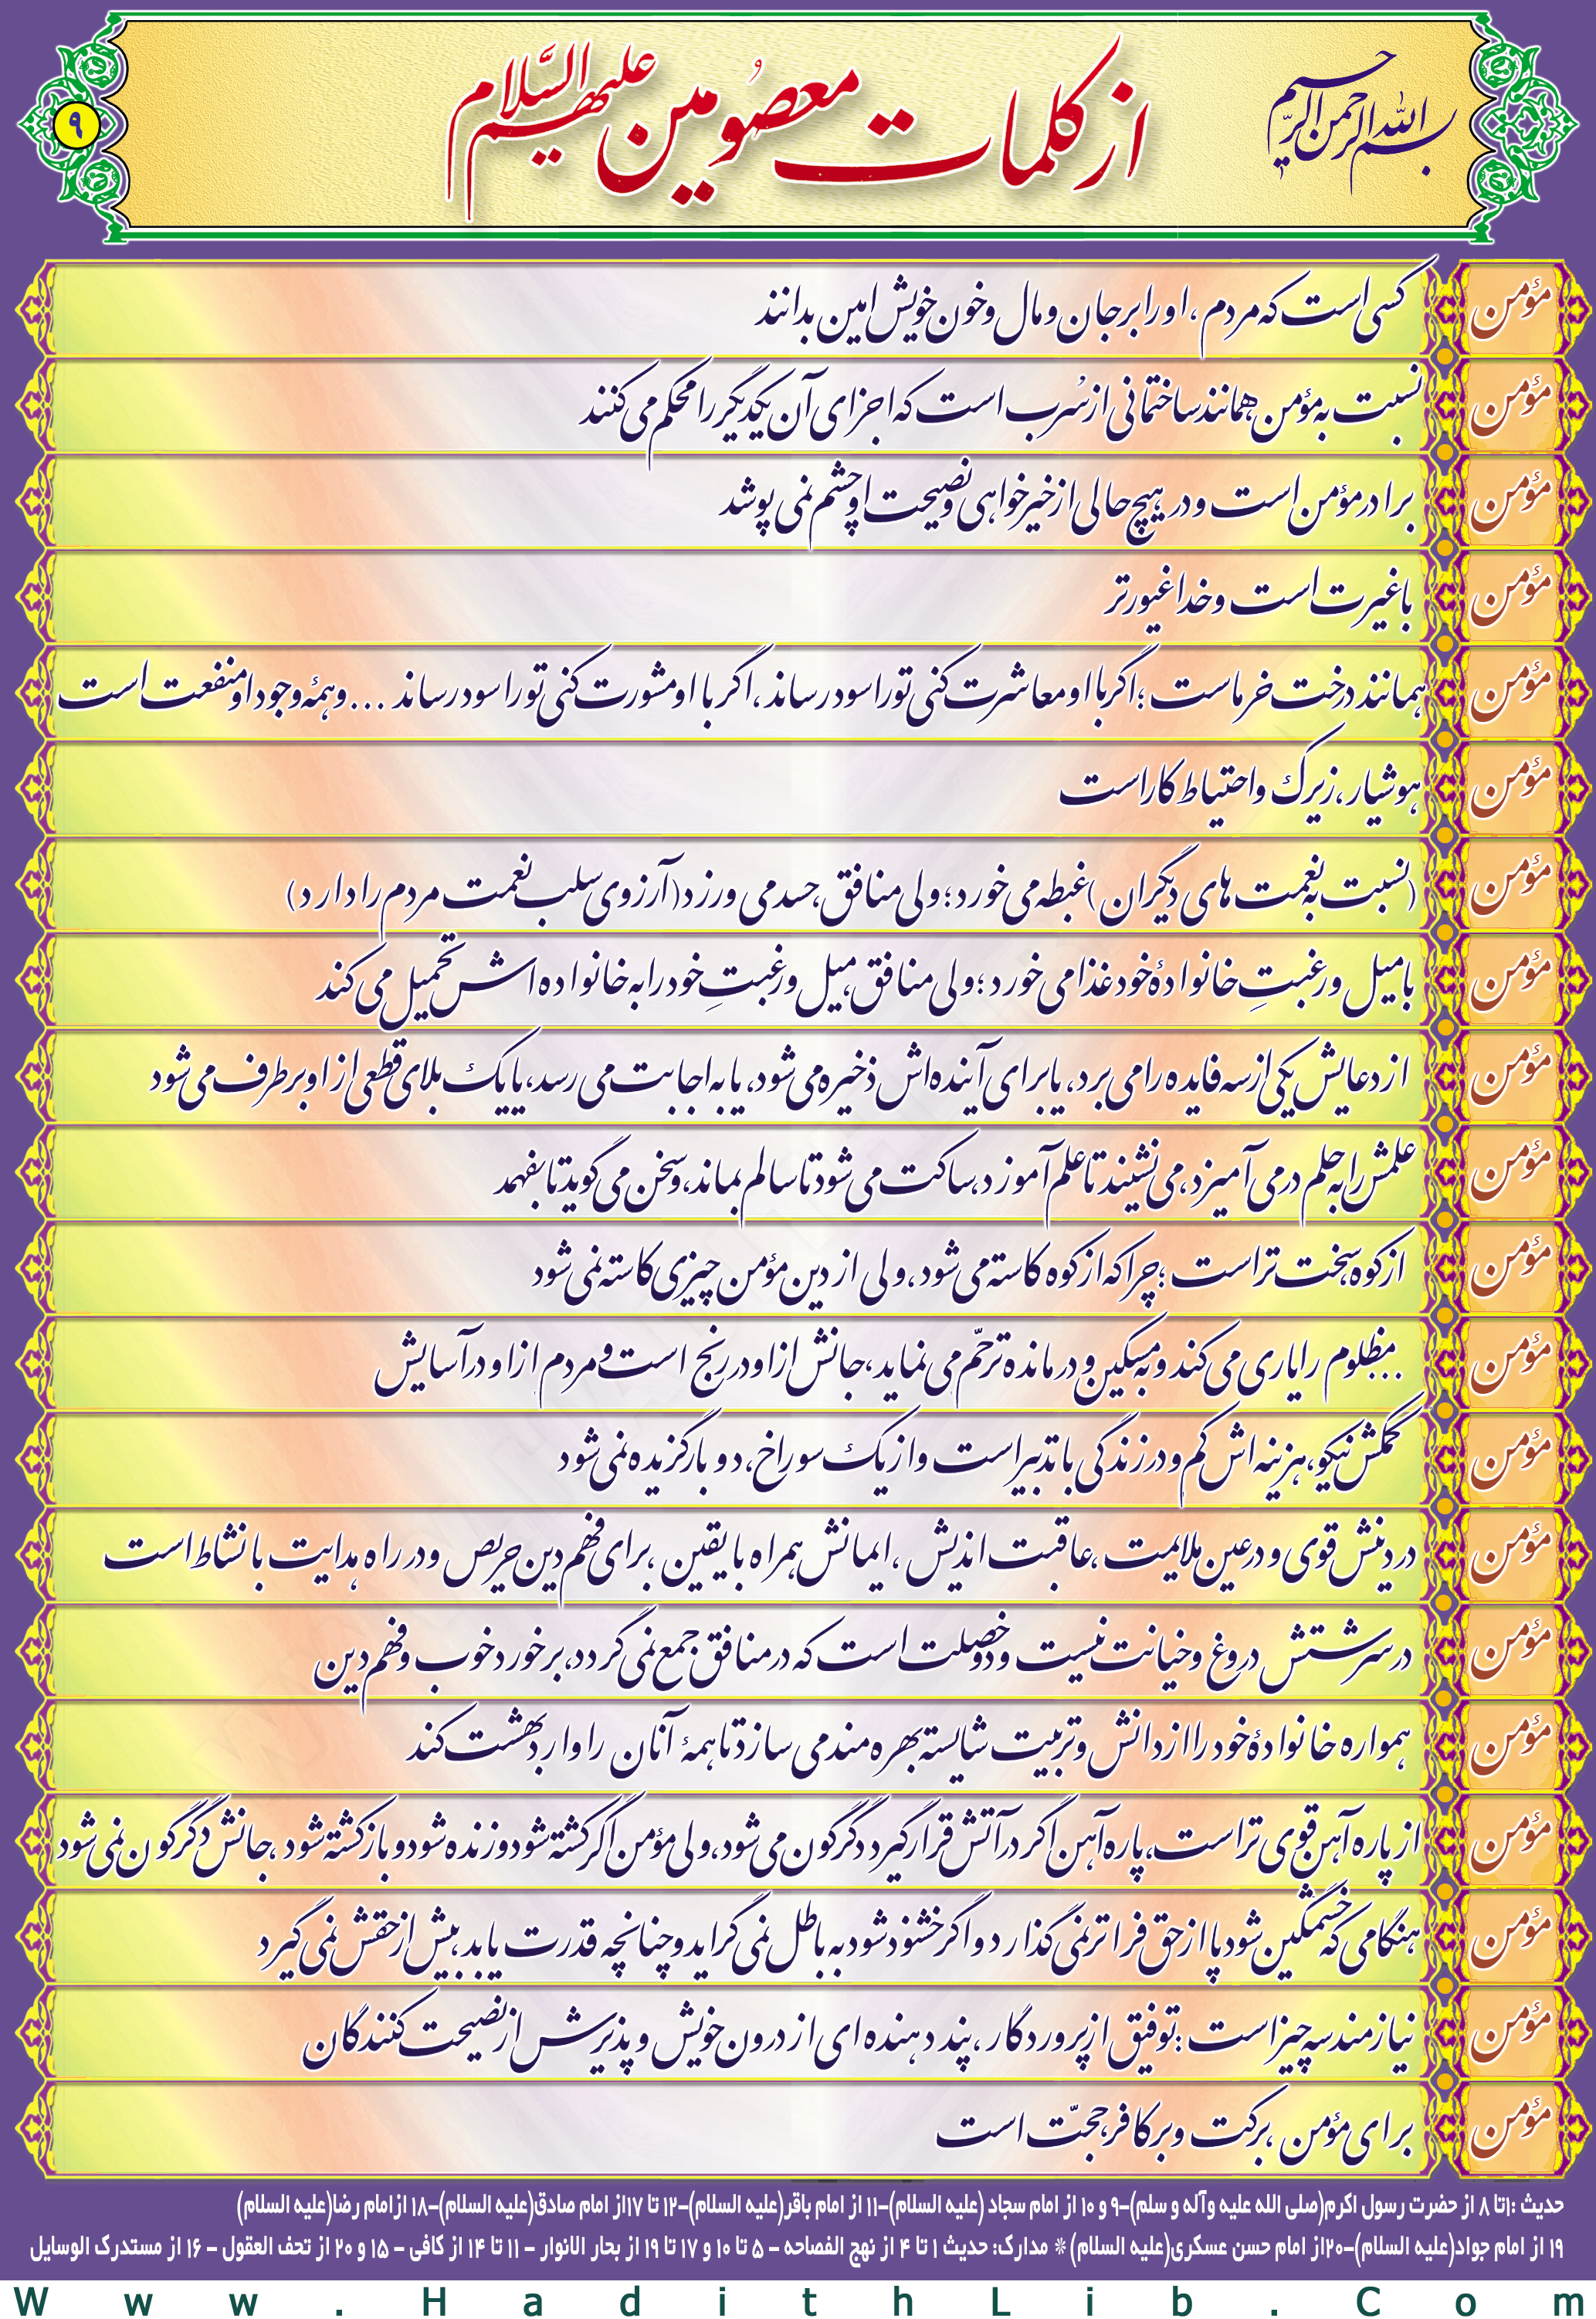 بسم الله الرحمن الرحیم
از کلمات معصومین علیهم السّلام
۹
مؤمن کسی است که مردم، او را بر جان و مال و خون خویش امین بدانند
مؤمن نسبت به مؤمن همانند ساختمانی از سُرب است که اجزای آن یکدیگر را محکم می کنند
مؤمن برادر مؤمن است و در هیچ حالی از خیرخواهی و نصیحت او چشم نمی پوشد
مؤمن با غیرت است و خدا غیورتر
مؤمن همانند درخت خرماست؛ اگر با او معاشرت کنی تو را سود رساند، اگر با او مشورت کنی تو را سود رساند ... و همهٔ وجود او منفعت است
مؤمن هوشیار، زیرک و احتیاط کار است
مؤمن (نسبت به نعمت های دیگران) غبطه می خورد؛ ولی منافق، حسد می ورزد (آرزوی سلب نعمت مردم را دارد)
مؤمن با میل و رغبتِ خانوادهٔ خود غذا می خورد؛ ولی منافق، میل و رغبتِ خود را به خانواده اش تحمیل می کند
مؤمن از دعایش یکی از سه فایده را می برد، یا برای آینده اش ذخیره می شود، یا به اجابت می رسد، یا یک بلای قطعی از او برطرف می شود
مؤمن علمش را به حلم در می آمیزد، می نشیند تا علم آموزد، ساکت می شود تا سالم بماند، و سخن می گوید تا بفهمد
مؤمن از کوه سخت تر است؛ چرا که از کوه کاسته می شود، ولی از دین مؤمن چیزی کاسته نمی شود
مؤمن ... مظلوم را یاری می کند و به مسکین و درمانده ترحّم می نماید، جانش از او در رنج است و مردم از او در آسایش
مؤمن کمکش نیکو، هزینه اش کم و در زندگی با تدبیر است و از یک سوراخ، دو بار گزیده نمی شود
مؤمن در دینش قوی و در عین ملایمت، عاقبت اندیش، ایمانش همراه با یقین، برای فهم دین حریص و در راه هدایت با نشاط است
مؤمن در سرشتش دروغ و خیانت نیست و دو خصلت است که در منافق جمع نمی گردد، برخورد خوب و فهم دین
مؤمن همواره خانوادهٔ خود را از دانش و تربیت شایسته بهره مند می سازد تا همهٔ آنان را وارد بهشت کند
مؤمن از پاره آهن قوی تر است، پاره آهن اگر در آتش قرار گیرد دگرگون می شود، ولی مؤمن اگر کشته شود و زنده شود و باز کشته شود، جانش دگرگون نمی شود
مؤمن هنگامی که خشمگین شود پا از حق فراتر نمی گذارد و اگر خشنود شود به باطل نمی گراید و چنانچه قدرت یابد، بیش از حقش نمی گیرد
مؤمن نیازمند سه چیز است: توفیق از پروردگار، پند دهنده ای از درون خویش و پذیرش از نصیحت کنندگان
مؤمن برای مؤمن، برکت و بر کافر، حجّت است
حدیث :۱تا ۸ از حضرت رسول اکرم(صلی الله علیه وآله و سلم)-۹ و ۱۰ از امام سجاد (علیه السلام)-۱۱ از امام باقر(علیه السلام)-۱۲ تا ۱۷از امام صادق(علیه السلام)-۱۸ ازامام رضا(علیه السلام)
۱۹ از امام جواد(علیه السلام)-۲۰از امام حسن عسکری(علیه السلام) * مدارک: حدیث ۱ تا ۴ از نهج الفصاحه - ۵ تا ۱۰ و ۱۷ تا ۱۹ از بحار الانوار - ۱۱ تا ۱۴ از کافی - ۱۵ و ۲۰ از تحف العقول - ۱۶ از مستدرک الوسایل
Www.HadithLib.Com